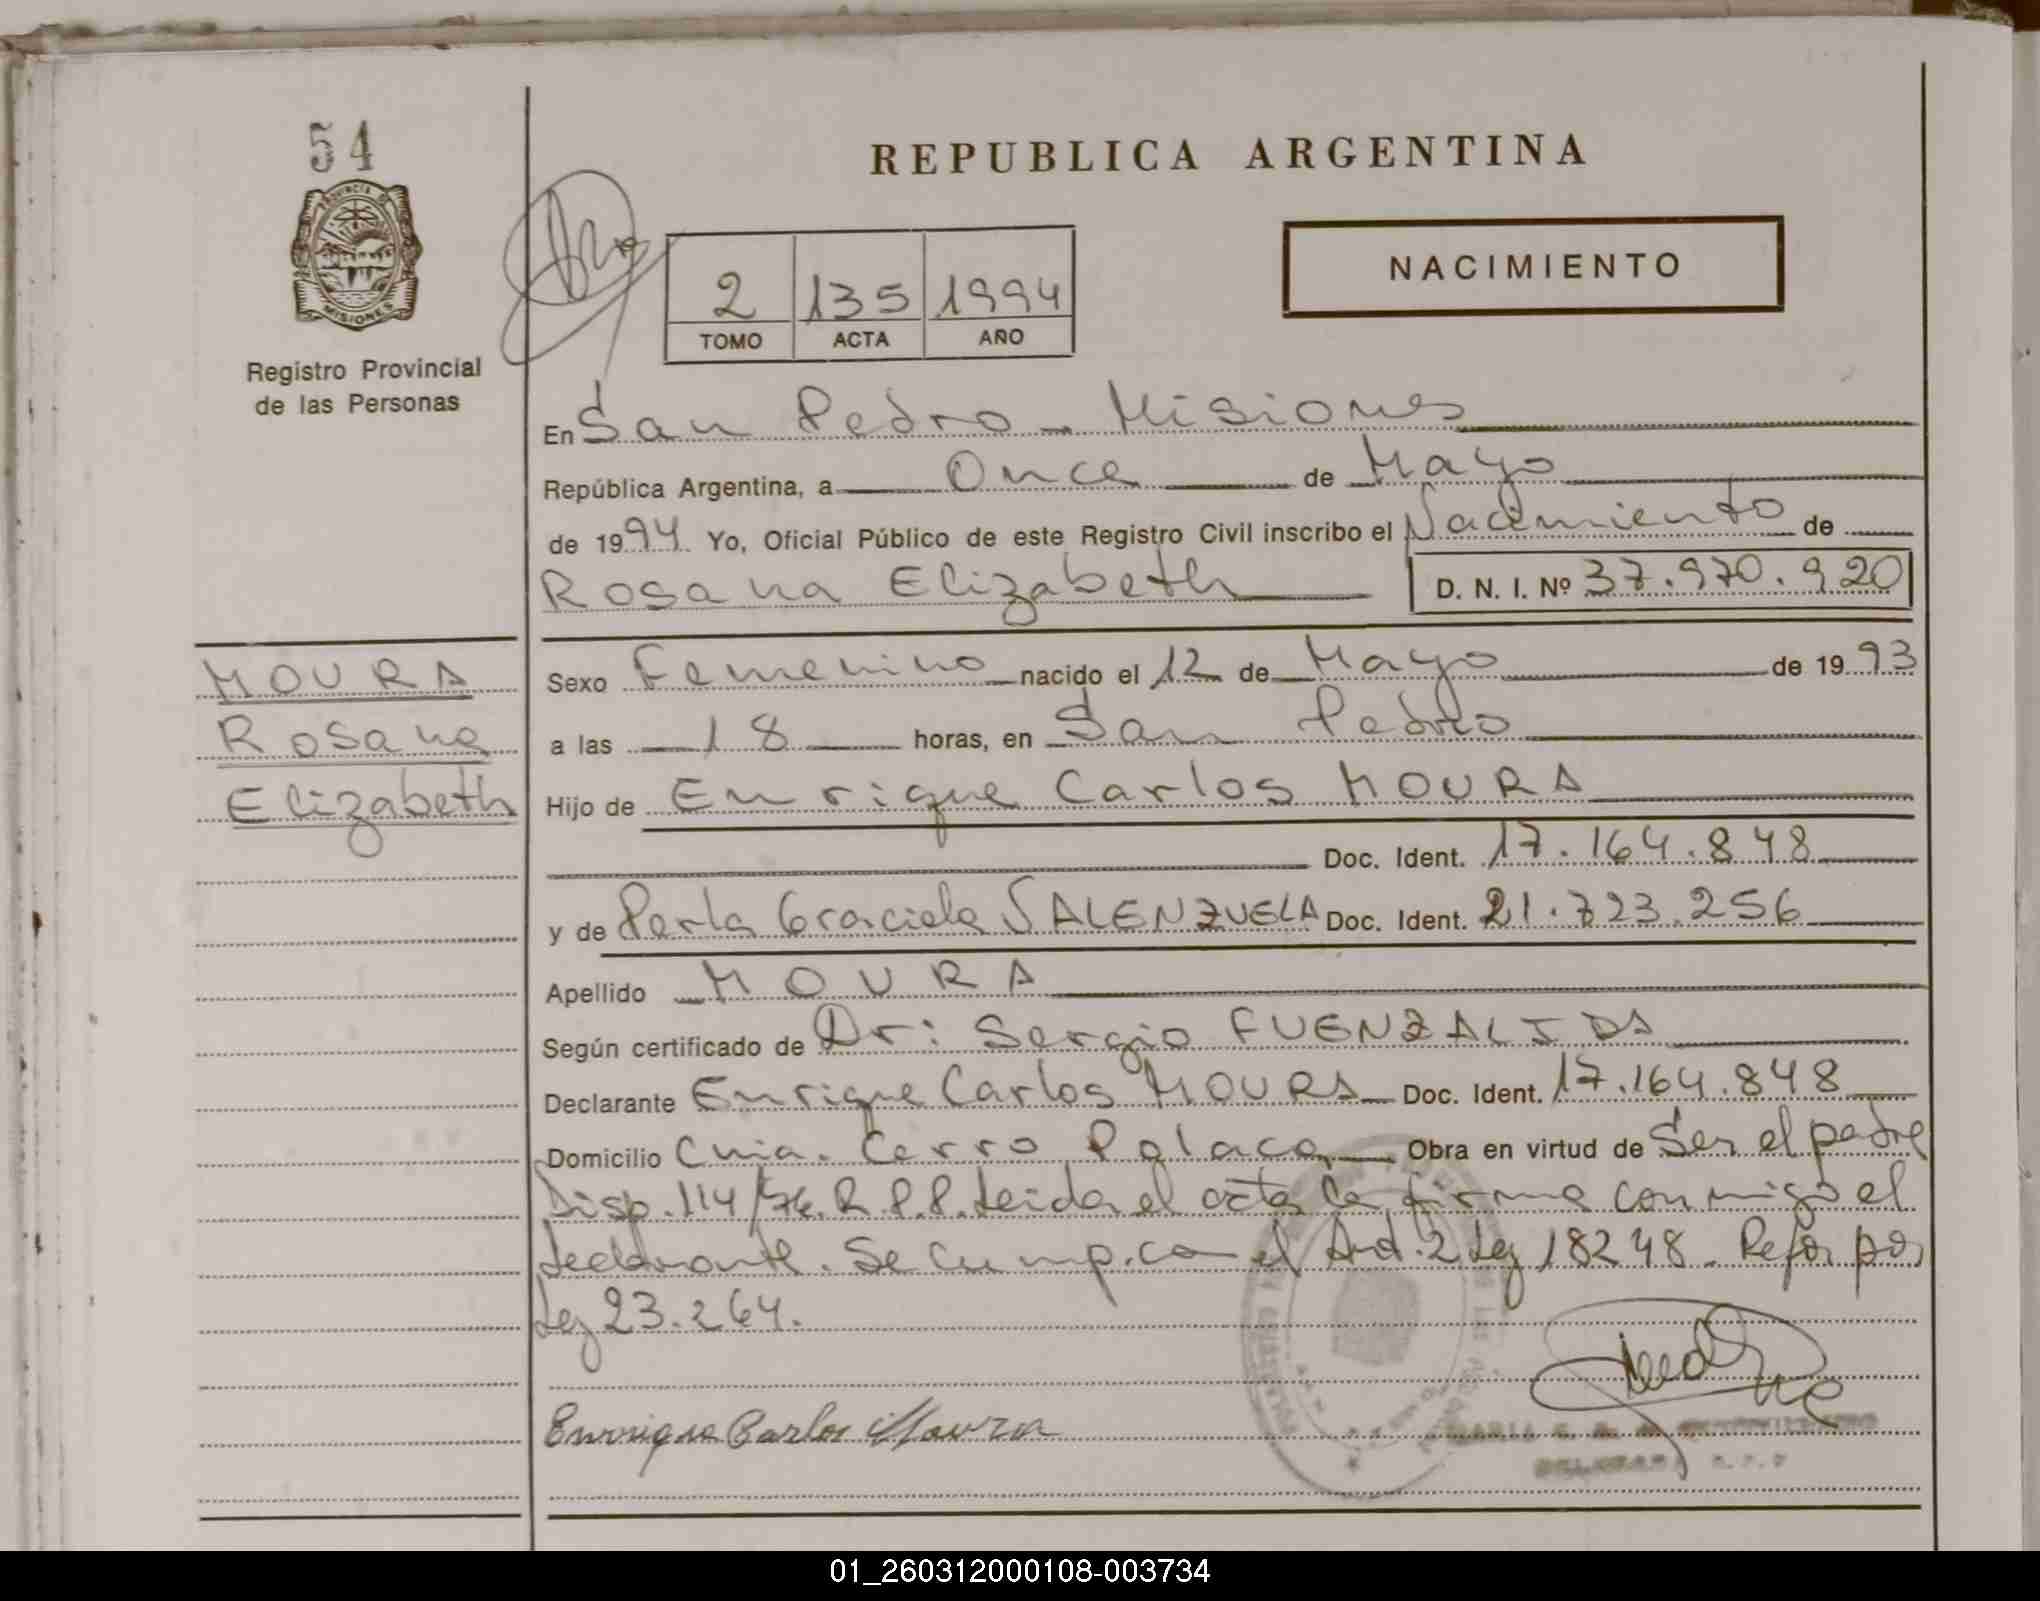 54
PROVINCIA DE
MISIONES
Registro Provincial
de las Personas
REPUBLICA ARGENTINA
NACIMIENTO
2 135 1994
TOMO ACTA AÑO
En San Pedro - Misiones
República Argentina, a Once de Mayo
de 1994 Yo, Oficial Público de este Registro Civil inscribo el Nacimiento de
Rosana Elizabeth D. N. I. Nº 37.970.920
MOURA
Rosana
Elizabeth
Sexo Femenino nacido el 12 de Mayo de 1993
a las 18 horas, en San Pedro
Hijo de Enrique Carlos MOURA
Doc. Ident. 17.164.848
y de Perla Graciela VALENZUELA Doc. Ident. 21.723.256
Apellido MOURA
Según certificado de Dr: Sergio FUENZALIDA
Declarante Enrique Carlos MOURA Doc. Ident. 17.164.848
Domicilio Cnia. Cerro Polaco Obra en virtud de Ser el padre
Disp. 114/76. R.P.P. Leida el acta la firma conmigo el
declarante. Se cump. con el Art. 2 Ley 18248. Refor por
Ley 23.264.
Enrrique Carlos Moura
01_260312000108-003734